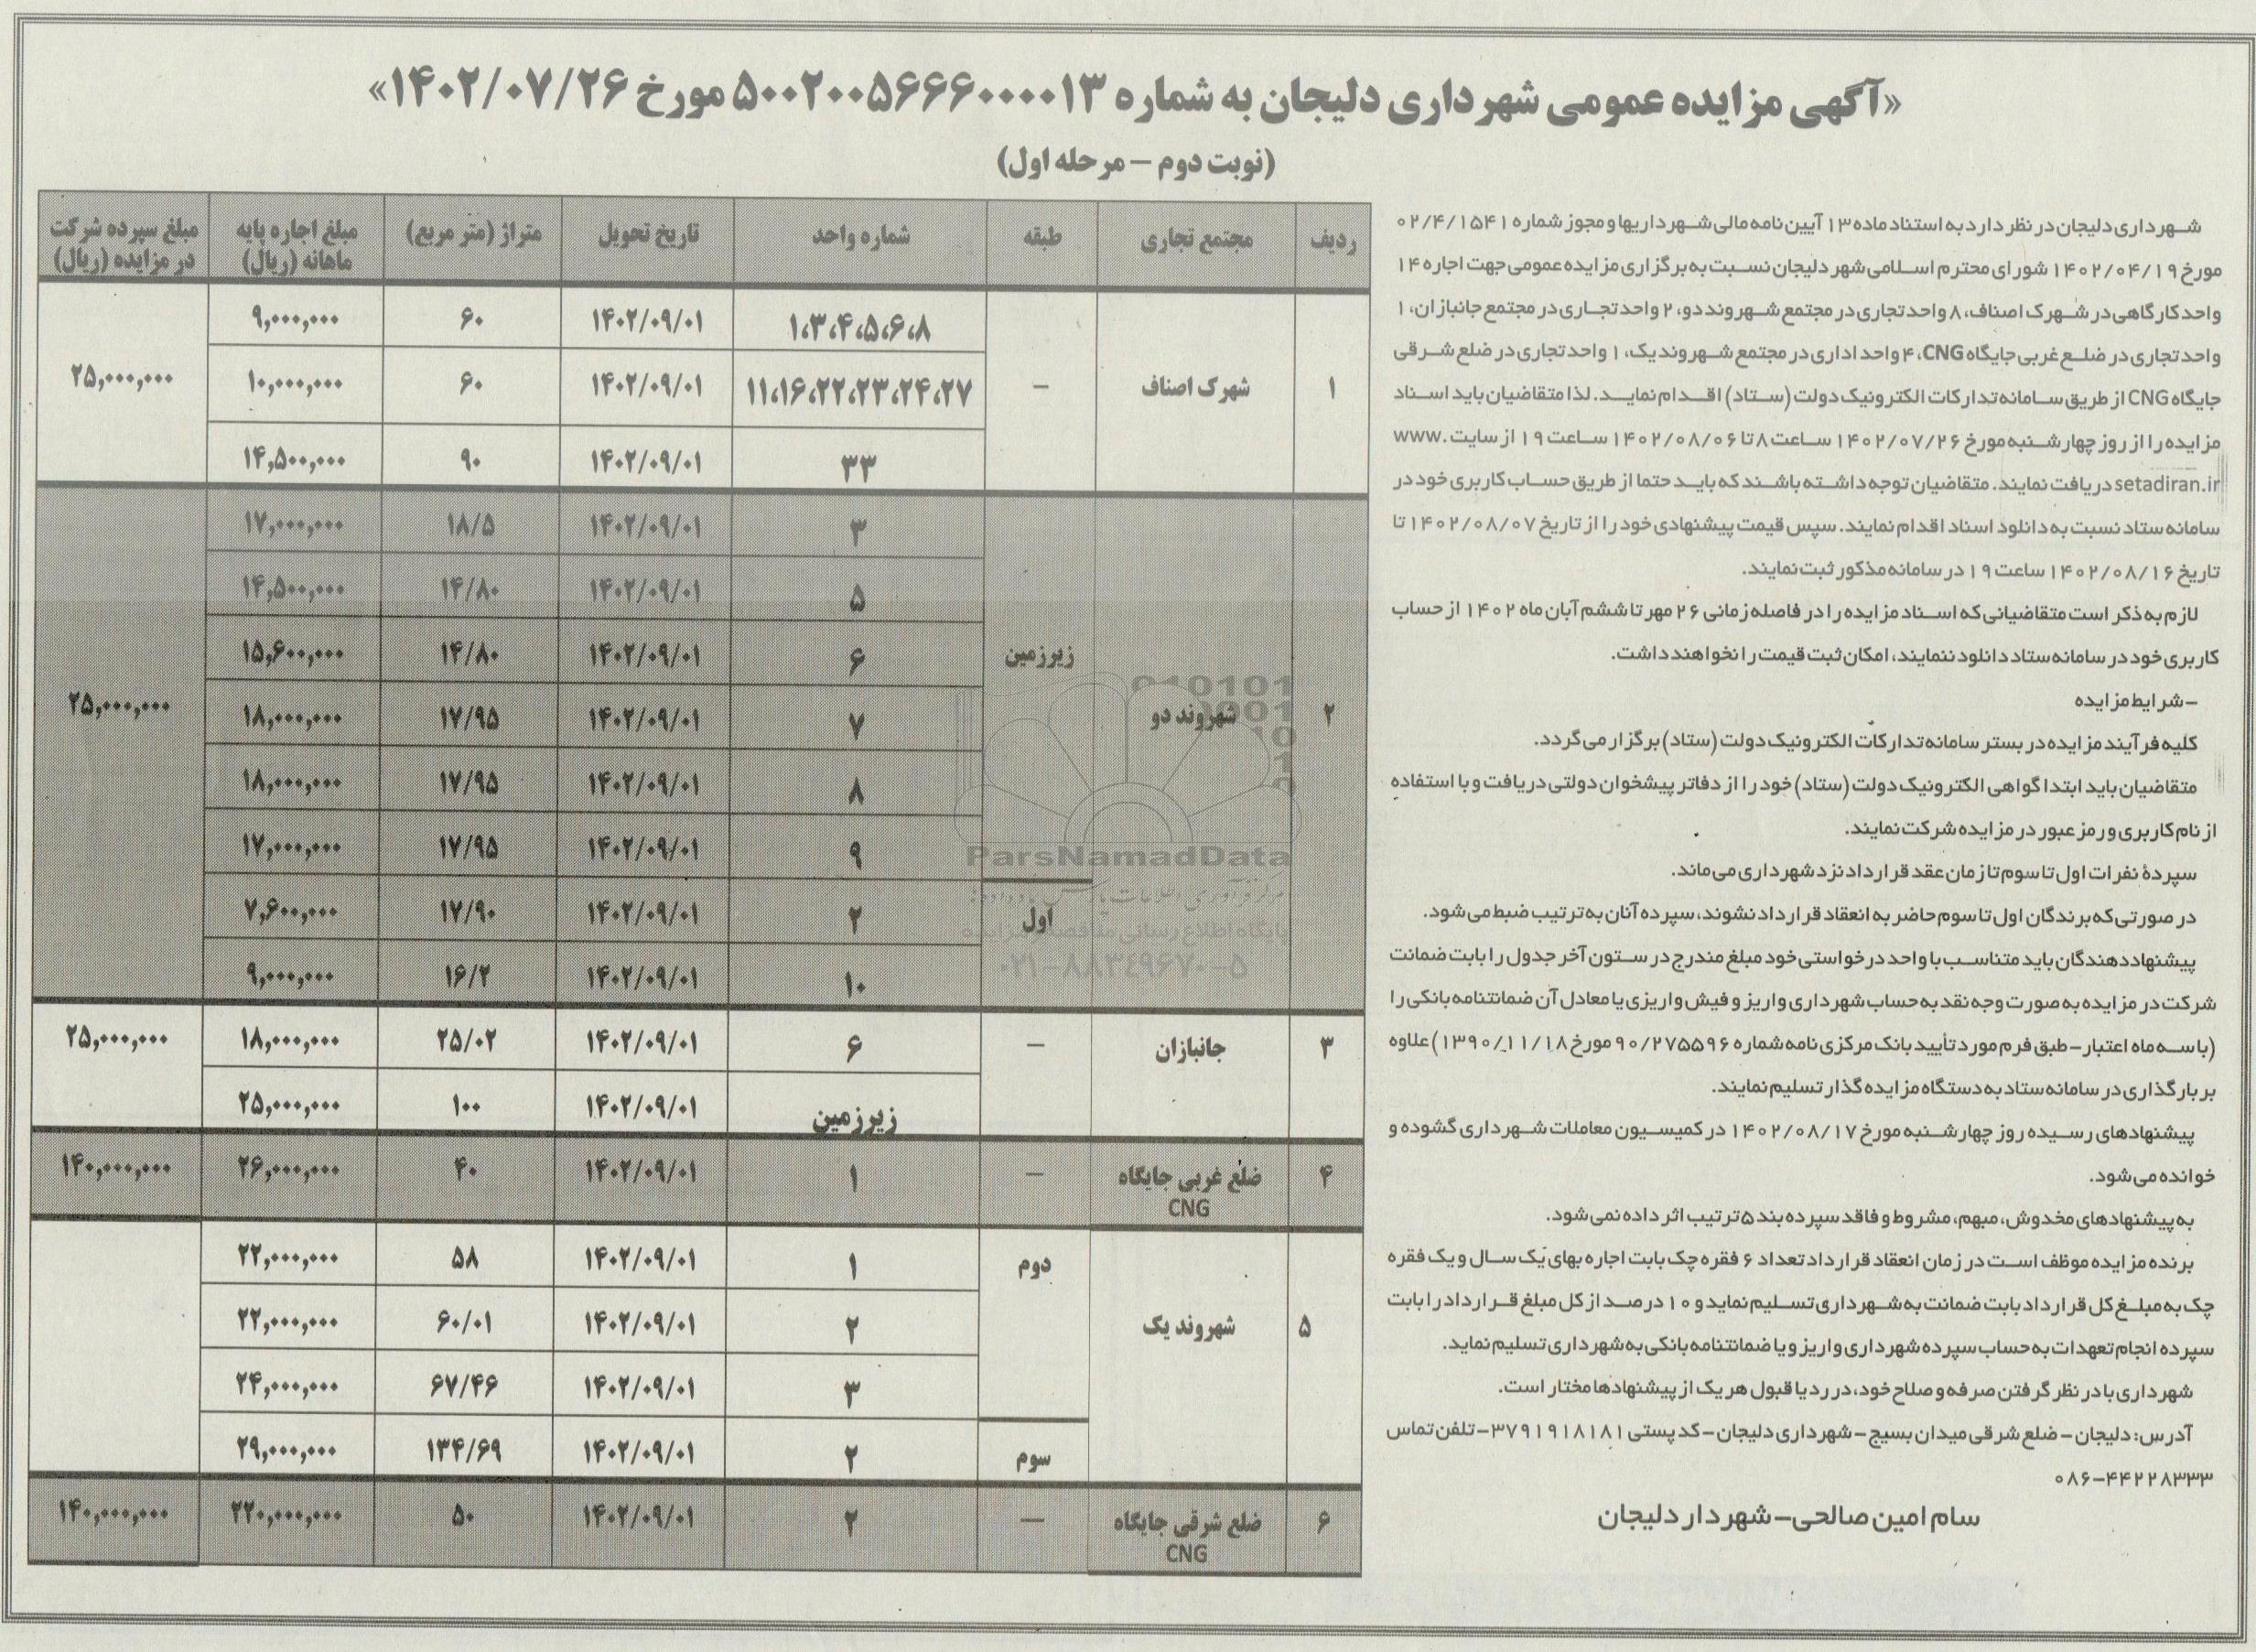 «آگهی مزایده عمومی شهرداری دلیجان به شماره ۵۰۰۲۰۰۵۶۶۶۰۰۰۰۱۳ مورخ ۱۴۰۲/۰۷/۲۶»
(نوبت دوم – مرحله اول)
شهرداری دلیجان در نظر دارد به استناد ماده ۱۳ آیین نامه مالی شهرداریها و مجوز شماره ۰۲/۴/۱۵۴۱
مورخ ۱۴۰۲/۰۴/۱۹ شورای محترم اسلامی شهر دلیجان نسبت به برگزاری مزایده عمومی جهت اجاره ۱۴
واحد کارگاهی در شهرک اصناف، ۸ واحد تجاری در مجتمع شهروند دو، ۲ واحد تجاری در مجتمع جانبازان، ۱
واحد تجاری در ضلع غربی جایگاه CNG، ۴ واحد اداری در مجتمع شهروند یک، ۱ واحد تجاری در ضلع شرقی
جایگاه CNG از طریق سامانه تدارکات الکترونیک دولت (ستاد) اقدام نماید. لذا متقاضیان باید اسناد
مزایده را از روز چهارشنبه مورخ ۱۴۰۲/۰۷/۲۶ ساعت ۸ تا ۱۴۰۲/۰۸/۰۶ ساعت ۱۹ از سایت www.
setadiran.ir دریافت نمایند. متقاضیان توجه داشته باشند که باید حتما از طریق حساب کاربری خود در
سامانه ستاد نسبت به دانلود اسناد اقدام نمایند. سپس قیمت پیشنهادی خود را از تاریخ ۱۴۰۲/۰۸/۰۷ تا
تاریخ ۱۴۰۲/۰۸/۱۶ ساعت ۱۹ در سامانه مذکور ثبت نمایند.
لازم به ذکر است متقاضیانی که اسناد مزایده را در فاصله زمانی ۲۶ مهر تا ششم آبان ماه ۱۴۰۲ از حساب
کاربری خود در سامانه ستاد دانلود ننمایند، امکان ثبت قیمت را نخواهند داشت.
– شرایط مزایده
کلیه فرآیند مزایده در بستر سامانه تدارکات الکترونیک دولت (ستاد) برگزار می گردد.
متقاضیان باید ابتدا گواهی الکترونیک دولت (ستاد) خود را از دفاتر پیشخوان دولتی دریافت و با استفاده
از نام کاربری و رمز عبور در مزایده شرکت نمایند.
سپردهٔ نفرات اول تا سوم تا زمان عقد قرارداد نزد شهرداری می ماند.
در صورتی که برندگان اول تا سوم حاضر به انعقاد قرارداد نشوند، سپرده آنان به ترتیب ضبط می شود.
پیشنهاددهندگان باید متناسب با واحد درخواستی خود مبلغ مندرج در ستون آخر جدول را بابت ضمانت
شرکت در مزایده به صورت وجه نقد به حساب شهرداری واریز و فیش واریزی یا معادل آن ضمانتنامه بانکی را
(با سه ماه اعتبار – طبق فرم مورد تأیید بانک مرکزی نامه شماره ۹۰/۲۷۵۵۹۶ مورخ ۱۳۹۰/۱۱/۱۸) علاوه
بر بارگذاری در سامانه ستاد به دستگاه مزایده گذار تسلیم نمایند.
پیشنهادهای رسیده روز چهارشنبه مورخ ۱۴۰۲/۰۸/۱۷ در کمیسیون معاملات شهرداری گشوده و
خوانده می شود.
به پیشنهادهای مخدوش، مبهم، مشروط و فاقد سپرده بند ۵ ترتیب اثر داده نمی شود.
برنده مزایده موظف است در زمان انعقاد قرارداد تعداد ۶ فقره چک بابت اجاره بهای یک سال و یک فقره
چک به مبلغ کل قرارداد بابت ضمانت به شهرداری تسلیم نماید و ۱۰ درصد از کل مبلغ قرارداد را بابت
سپرده انجام تعهدات به حساب سپرده شهرداری واریز و یا ضمانتنامه بانکی به شهرداری تسلیم نماید.
شهرداری با در نظر گرفتن صرفه و صلاح خود، در رد یا قبول هر یک از پیشنهادها مختار است.
آدرس: دلیجان – ضلع شرقی میدان بسیج – شهرداری دلیجان – کد پستی ۳۷۹۱۹۱۸۱۸۱ – تلفن تماس
۰۸۶-۴۴۲۲۸۳۳۳
سام امین صالحی – شهردار دلیجان
ردیف مجتمع تجاری طبقه شماره واحد تاریخ تحویل متراژ (متر مربع) مبلغ اجاره پایه ماهانه (ریال) مبلغ سپرده شرکت در مزایده (ریال)
۱ شهرک اصناف – ۱،۳،۴،۵،۶،۸ ۱۴۰۲/۰۹/۰۱ ۶۰ ۹,۰۰۰,۰۰۰ ۲۵,۰۰۰,۰۰۰
۱۱،۱۶،۲۲،۲۳،۲۴،۲۷ ۱۴۰۲/۰۹/۰۱ ۶۰ ۱۰,۰۰۰,۰۰۰
۳۳ ۱۴۰۲/۰۹/۰۱ ۹۰ ۱۴,۵۰۰,۰۰۰
۲ شهروند دو زیرزمین ۳ ۱۴۰۲/۰۹/۰۱ ۱۸/۵ ۱۷,۰۰۰,۰۰۰ ۲۵,۰۰۰,۰۰۰
۵ ۱۴۰۲/۰۹/۰۱ ۱۴/۸۰ ۱۴,۵۰۰,۰۰۰
۶ ۱۴۰۲/۰۹/۰۱ ۱۴/۸۰ ۱۵,۶۰۰,۰۰۰
۷ ۱۴۰۲/۰۹/۰۱ ۱۷/۹۵ ۱۸,۰۰۰,۰۰۰
۸ ۱۴۰۲/۰۹/۰۱ ۱۷/۹۵ ۱۸,۰۰۰,۰۰۰
۹ ۱۴۰۲/۰۹/۰۱ ۱۷/۹۵ ۱۷,۰۰۰,۰۰۰
اول ۲ ۱۴۰۲/۰۹/۰۱ ۱۷/۹۰ ۷,۶۰۰,۰۰۰
۱۰ ۱۴۰۲/۰۹/۰۱ ۱۶/۲ ۹,۰۰۰,۰۰۰
۳ جانبازان – ۶ ۱۴۰۲/۰۹/۰۱ ۲۵/۰۲ ۱۸,۰۰۰,۰۰۰ ۲۵,۰۰۰,۰۰۰
زیرزمین ۱۴۰۲/۰۹/۰۱ ۱۰۰ ۲۵,۰۰۰,۰۰۰
۴ ضلع غربی جایگاه CNG – ۱ ۱۴۰۲/۰۹/۰۱ ۴۰ ۲۶,۰۰۰,۰۰۰ ۱۴۰,۰۰۰,۰۰۰
۵ شهروند یک دوم ۱ ۱۴۰۲/۰۹/۰۱ ۵۸ ۲۲,۰۰۰,۰۰۰
۲ ۱۴۰۲/۰۹/۰۱ ۶۰/۰۱ ۲۲,۰۰۰,۰۰۰
۳ ۱۴۰۲/۰۹/۰۱ ۶۷/۴۶ ۲۴,۰۰۰,۰۰۰
سوم ۲ ۱۴۰۲/۰۹/۰۱ ۱۳۴/۶۹ ۲۹,۰۰۰,۰۰۰
۶ ضلع شرقی جایگاه CNG – ۲ ۱۴۰۲/۰۹/۰۱ ۵۰ ۲۲۰,۰۰۰,۰۰۰ ۱۴۰,۰۰۰,۰۰۰
ParsNamadData
پایگاه اطلاع رسانی مناقصه مزایده
۰۲۱-۸۸۳۴۹۶۷۰-۵